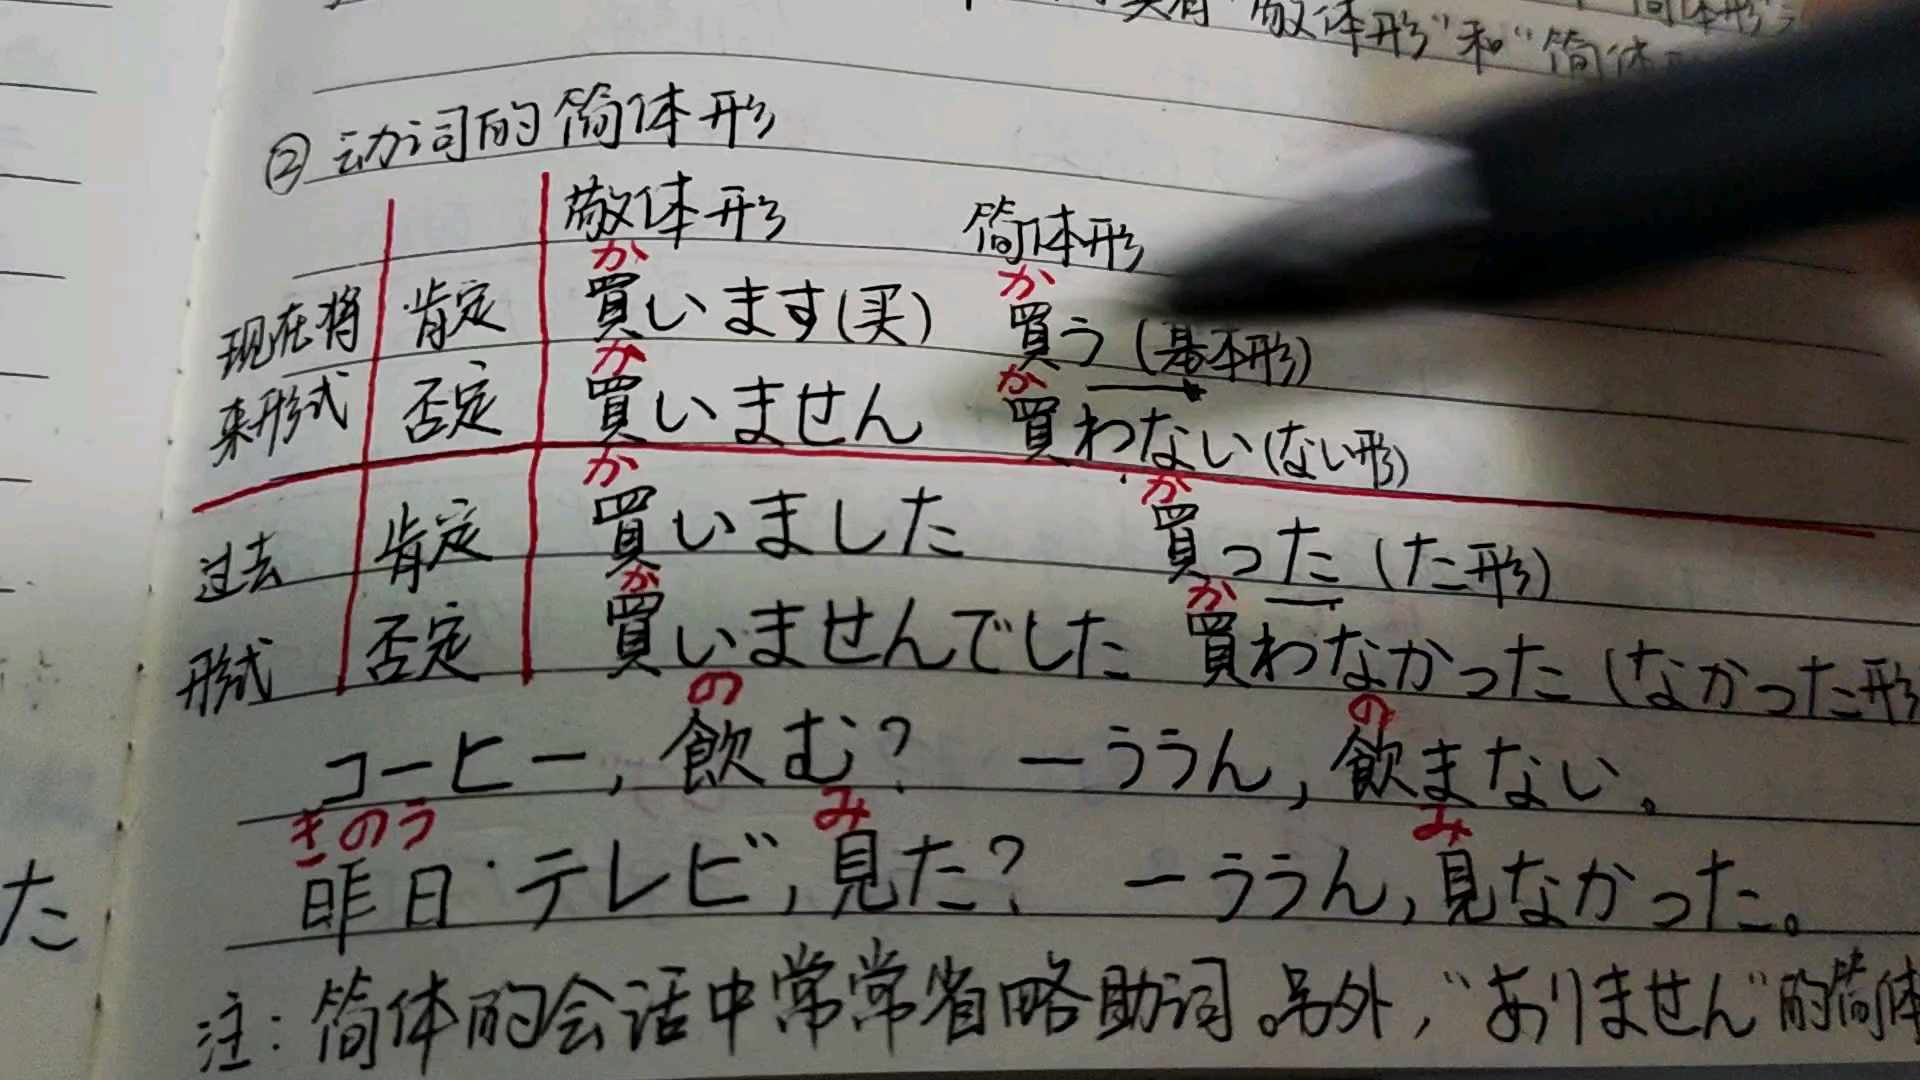 "敬体形"和"简体
②动词的简体形
敬体形 简体形
か か
现在将 肯定 買います(买) 買う(基本形)
か か
来形式 否定 買いません 買わない(ない形)
か か
过去 肯定 買いました 買った(た形)
か か
形式 否定 買いませんでした 買わなかった(なかった形
の の
コーヒー,飲む? ーううん,飲まない。
きのう み み
昨日·テレビ,見た? ーううん,見なかった。
た
注:简体的会话中常常省略助词。另外,"ありません"的简体